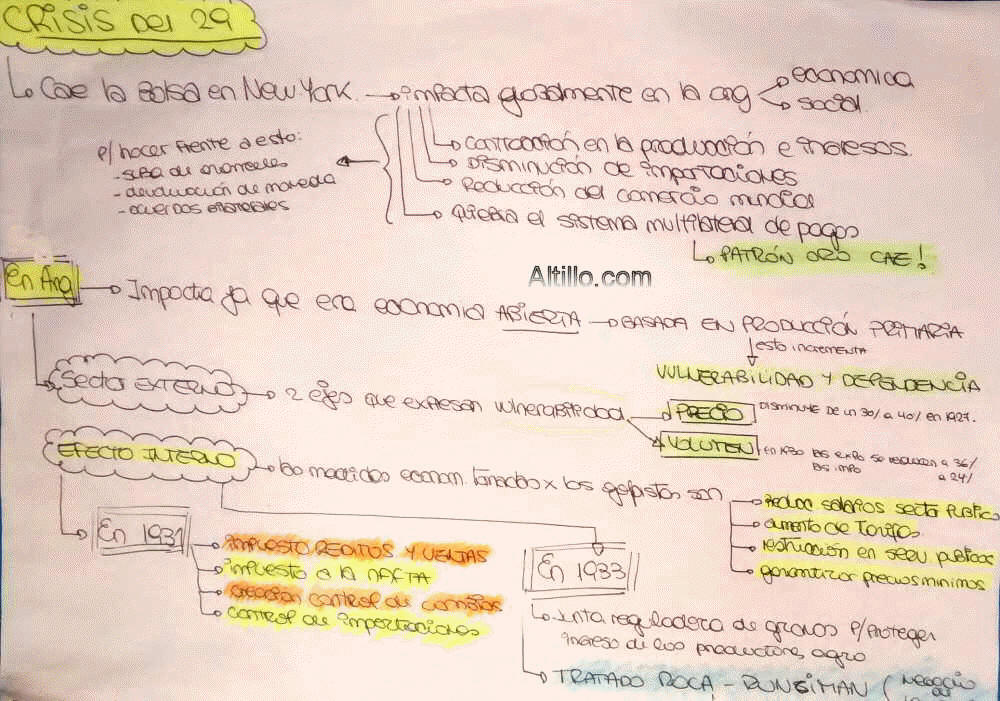 CRISIS DEL 29
Cae la Bolsa en New York. → impacta globalmente en la arg
economica
social
contracción en la producción e ingresos.
Disminución de importaciones
Reducción del comercio mundial
quiebra el sistema multilateral de pagos
PATRÓN ORO CAE!
p/ hacer frente a esto:
- suba de aranceles
- devaluación de moneda
- acuerdos bilaterales
Altillo.com
En Arg
Impacta ya que era economia ABIERTA → BASADA EN PRODUCCIÓN PRIMARIA
esto incrementa
VULNERABILIDAD Y DEPENDENCIA
Sector EXTERNO → 2 ejes que expresan vulnerabilidad
PRECIO DISMINUYE DE UN 30% a 40% en 1927.
VOLUMEN en 1930 las expo se reducen a 36%
las impo a 24%
EFECTO INTERNO → las medidas econom. tomadas x los golpistas son
reduc salarios sector public
aumento de tarifas
restricción en secu publicas
garantizar precios minimos
En 1931
IMPUESTO REDITOS Y VENTAS
impuesto a la NAFTA
creacion control de cambios
control de importaciones
En 1933
Junta reguladora de granos p/ proteger
ingreso de los productores agro
TRATADO ROCA - RUNSIMAN (negocio